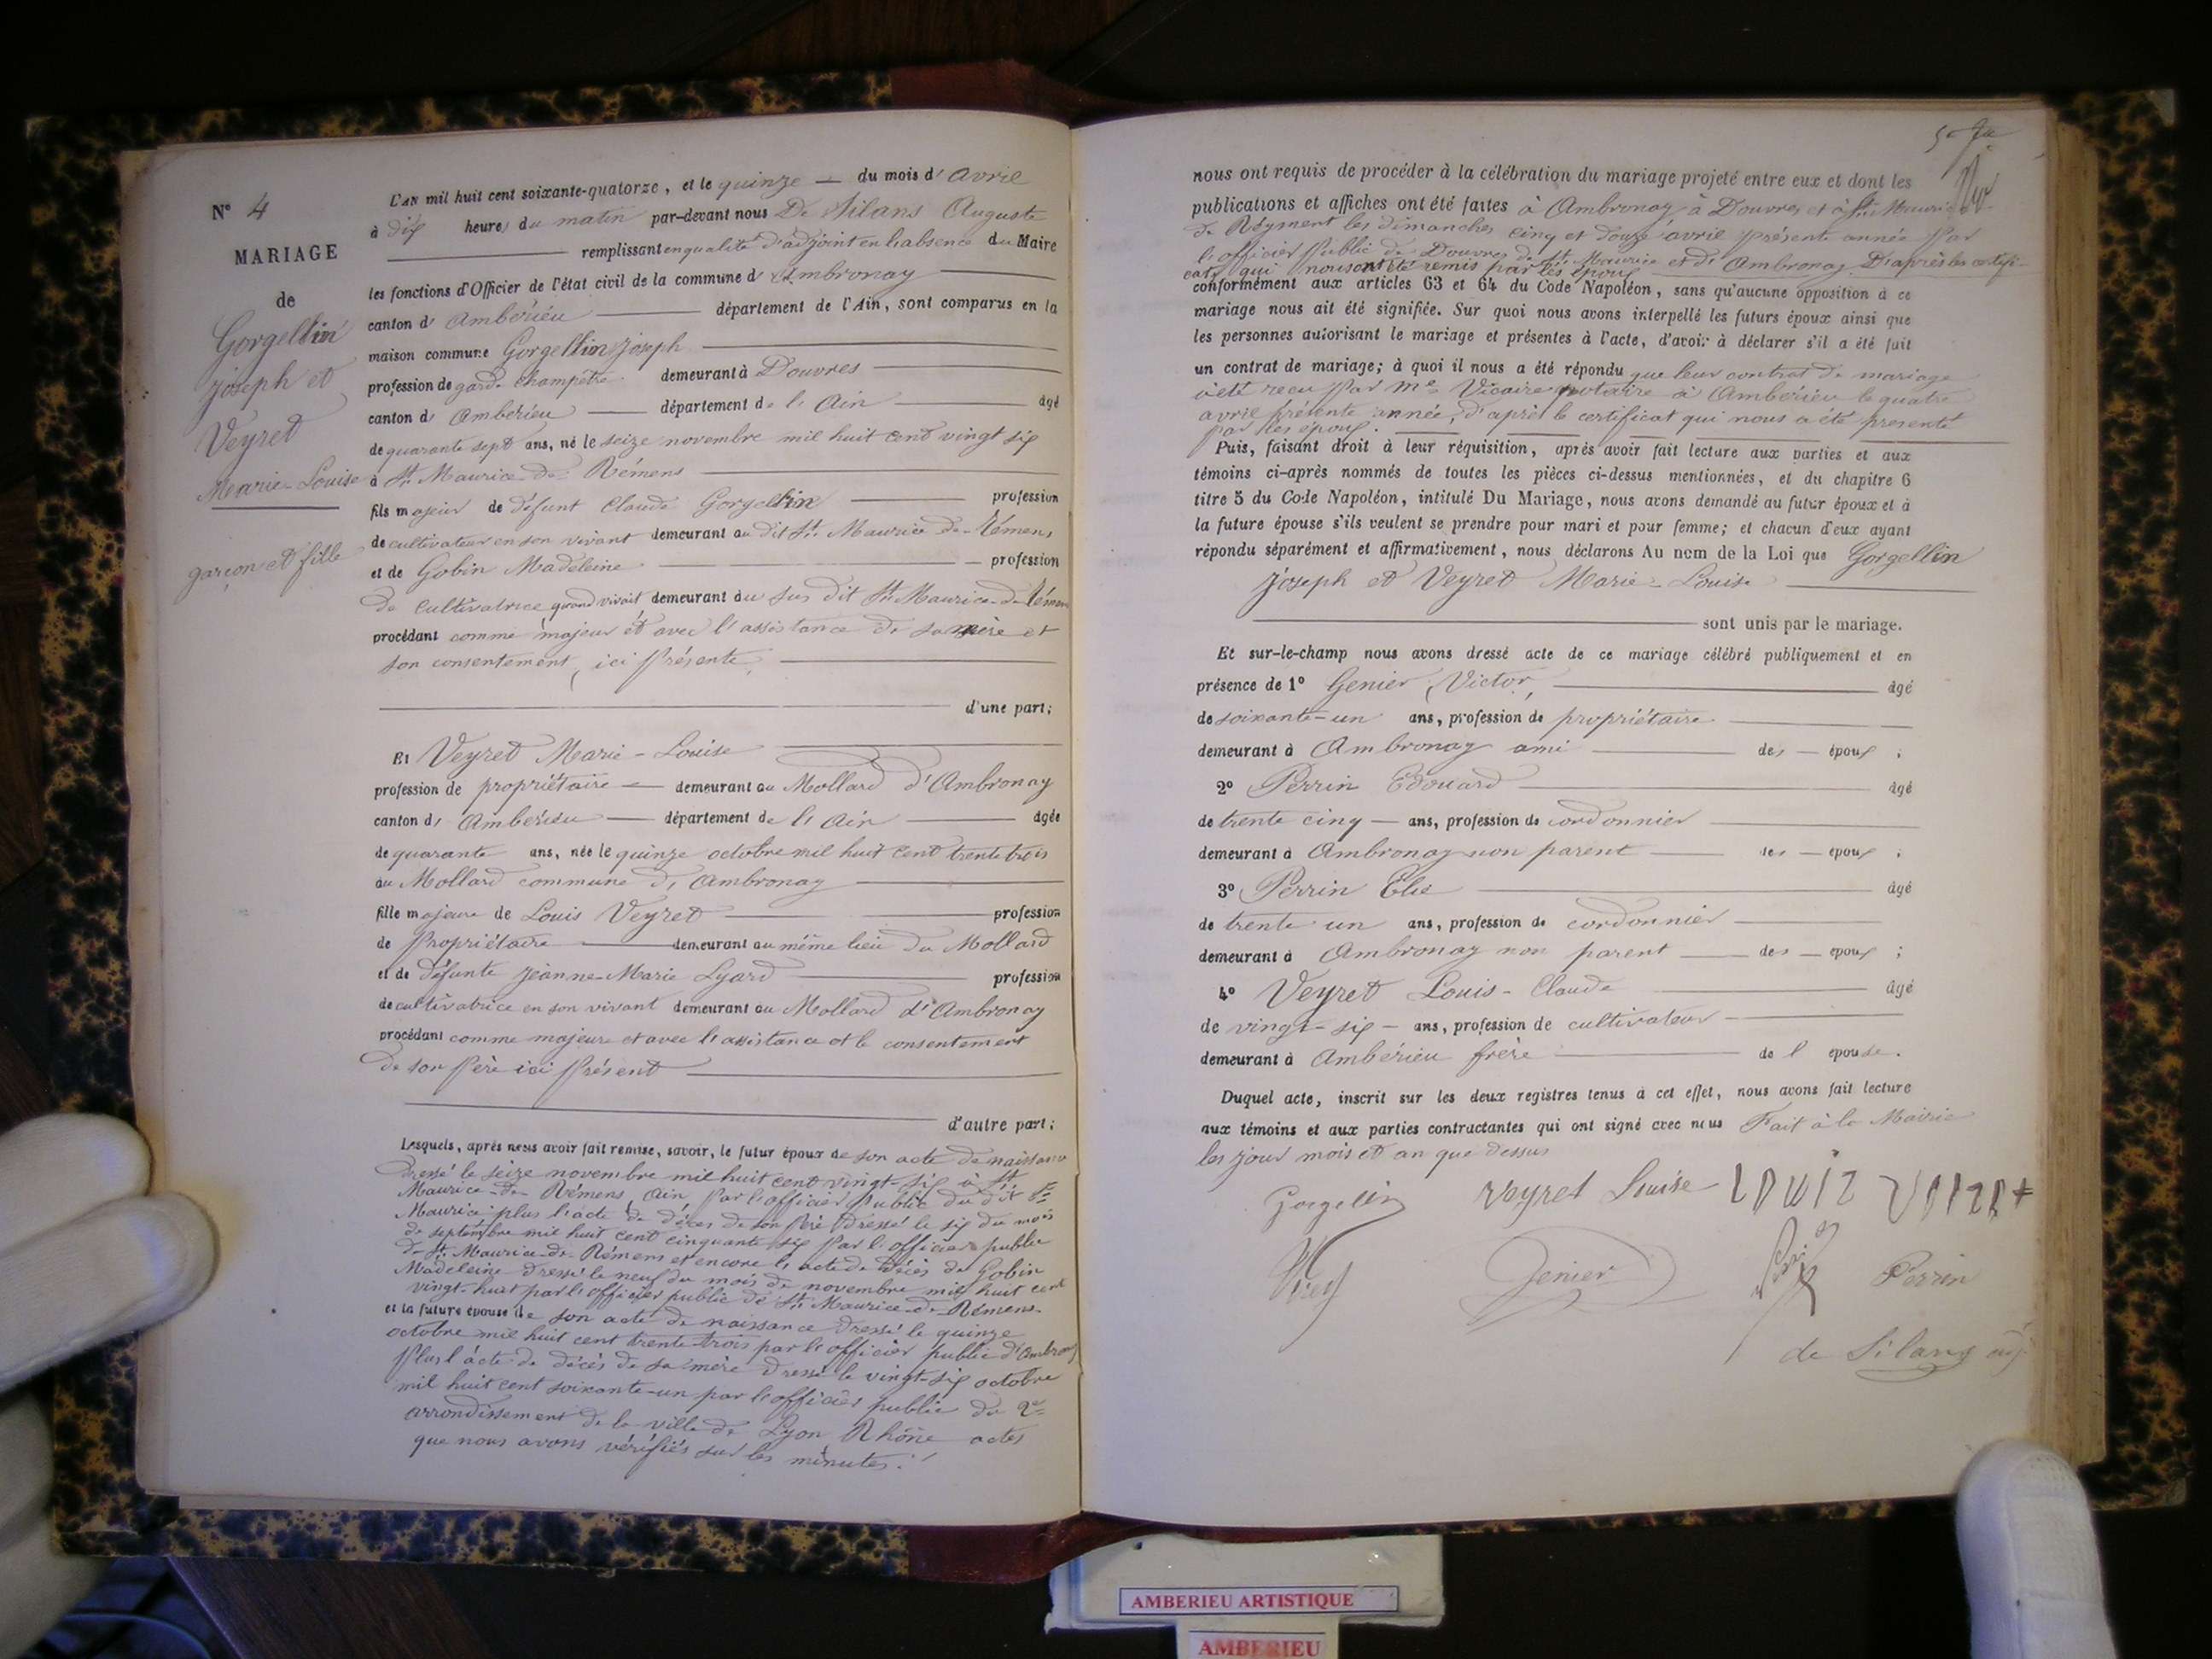 N° 4
MARIAGE
de
Gorgellin
joseph et
Veyret
Marie-Louise
garçon et fille
L'AN mil huit cent soixante-quatorze, et le quinze — du mois d' avril
à dix heures du matin par-devant nous De Silans Auguste
remplissant en qualité d'adjoint en l'absence du Maire
les fonctions d'Officier de l'état civil de la commune d' Ambronay
canton d' Ambérieu département de l'Ain, sont comparus en la
maison commune Gorgellin joseph
profession de garde champêtre demeurant à Douvres
canton d' Ambérieu département de l'Ain âgé
de quarante sept ans, né le seize novembre mil huit cent vingt six
à St Maurice-de-Rémens
fils majeur de défunt Claude Gorgellin profession
de cultivateur en son vivant demeurant au dit St Maurice-de-Rémens
et de Gobin Madeleine profession
de cultivatrice quand vivait demeurant au sus dit St Maurice-de-Rémens
procédant comme majeur et avec l'assistance de sa mère et
son consentement, ici présente
d'une part;
Et Veyret Marie-Louise
profession de propriétaire demeurant au Mollard d'Ambronay
canton d' Ambérieu département de l'Ain âgée
de quarante ans, née le quinze octobre mil huit cent trente trois
au Mollard commune d'Ambronay
fille majeure de Louis Veyret profession
de propriétaire demeurant au même lieu du Mollard
et de défunte jeanne-Marie Lyard profession
de cultivatrice en son vivant demeurant au Mollard d'Ambronay
procédant comme majeure et avec l'assistance et le consentement
de son père ici présent
d'autre part;
Lesquels, après nous avoir fait remise, savoir, le futur époux de son acte de naissance
dressé le seize novembre mil huit cent vingt-six à St
Maurice-de-Rémens, Ain, par l'officier public du dit St
Maurice plus l'acte de décès de son père dressé le six du mois
de septembre mil huit cent cinquante six par l'officier public
de St Maurice-de-Rémens et encore l'acte de décès de Gobin
Madeleine dressé le neuf du mois de novembre mil huit cent
vingt-huit par l'officier public de St Maurice-de-Rémens
et la future épouse de son acte de naissance dressé le quinze
octobre mil huit cent trente trois par l'officier public d'Ambronay
plus l'acte de décès de sa mère dressé le vingt-six octobre
mil huit cent soixante-un par l'officier public du 2e
arrondissement de la ville de Lyon Rhône actes
que nous avons vérifiés sur les minutes.
nous ont requis de procéder à la célébration du mariage projeté entre eux et dont les
publications et affiches ont été faites à Ambronay à Douvres et à St Maurice
de Rémens les dimanches cinq et douze avril présente année par
l'officier public de Douvres de St Maurice et d'Ambronay. D'après les certifi-
cats qui nous ont été remis par les époux
conformément aux articles 63 et 64 du Code Napoléon, sans qu'aucune opposition à ce
mariage nous ait été signifiée. Sur quoi nous avons interpellé les futurs époux ainsi que
les personnes autorisant le mariage et présentes à l'acte, d'avoir à déclarer s'il a été fait
un contrat de mariage; à quoi il nous a été répondu que leur contrat de mariage
a été reçu par Me Vicaire notaire à Ambérieu le quatre
avril présente année, d'après le certificat qui nous a été présenté
par les époux.
Puis, faisant droit à leur réquisition, après avoir fait lecture aux parties et aux
témoins ci-après nommés de toutes les pièces ci-dessus mentionnées, et du chapitre 6
titre 5 du Code Napoléon, intitulé Du Mariage, nous avons demandé au futur époux et à
la future épouse s'ils veulent se prendre pour mari et pour femme; et chacun d'eux ayant
répondu séparément et affirmativement, nous déclarons Au nom de la Loi que Gorgellin
joseph et Veyret Marie-Louise
sont unis par le mariage.
Et sur-le-champ nous avons dressé acte de ce mariage célébré publiquement et en
présence de 1° Genier Victor, âgé
de soixante-un ans, profession de propriétaire
demeurant à Ambronay ami des époux ;
2° Perrin Edouard âgé
de trente cinq ans, profession de cordonnier
demeurant à Ambronay non parent des époux ;
3° Perrin Elie âgé
de trente un ans, profession de cordonnier
demeurant à Ambronay non parent des époux ;
4° Veyret Louis-Claude âgé
de vingt-six ans, profession de cultivateur
demeurant à Ambérieu frère de l'épouse.
Duquel acte, inscrit sur les deux registres tenus à cet effet, nous avons fait lecture
aux témoins et aux parties contractantes qui ont signé avec nous Fait à la Mairie
les jour mois et an que dessus
Gorgelin veyret Louise
Genier Perrin
de Silans adj
AMBERIEU ARTISTIQUE
AMBERIEU